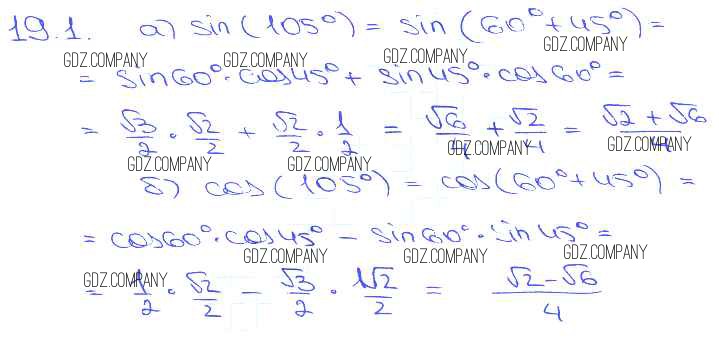 19.1. а) sin(105°) = sin(60°+45°) =
GDZ.COMPANY GDZ.COMPANY GDZ.COMPANY GDZ.COMPANY
= sin60°·cos45° + sin45°·cos60° =
= √3/2 · √2/2 + √2/2 · 1/2 = √6/4 + √2/4 = √2+√6/4
GDZ.COMPANY GDZ.COMPANY GDZ.COMPANY GDZ.COMPANY
б) cos(105°) = cos(60°+45°) =
= cos60°·cos45° − sin60°·sin45° =
GDZ.COMPANY GDZ.COMPANY GDZ.COMPANY GDZ.COMPANY
= 1/2 · √2/2 − √3/2 · √2/2 = √2−√6/4